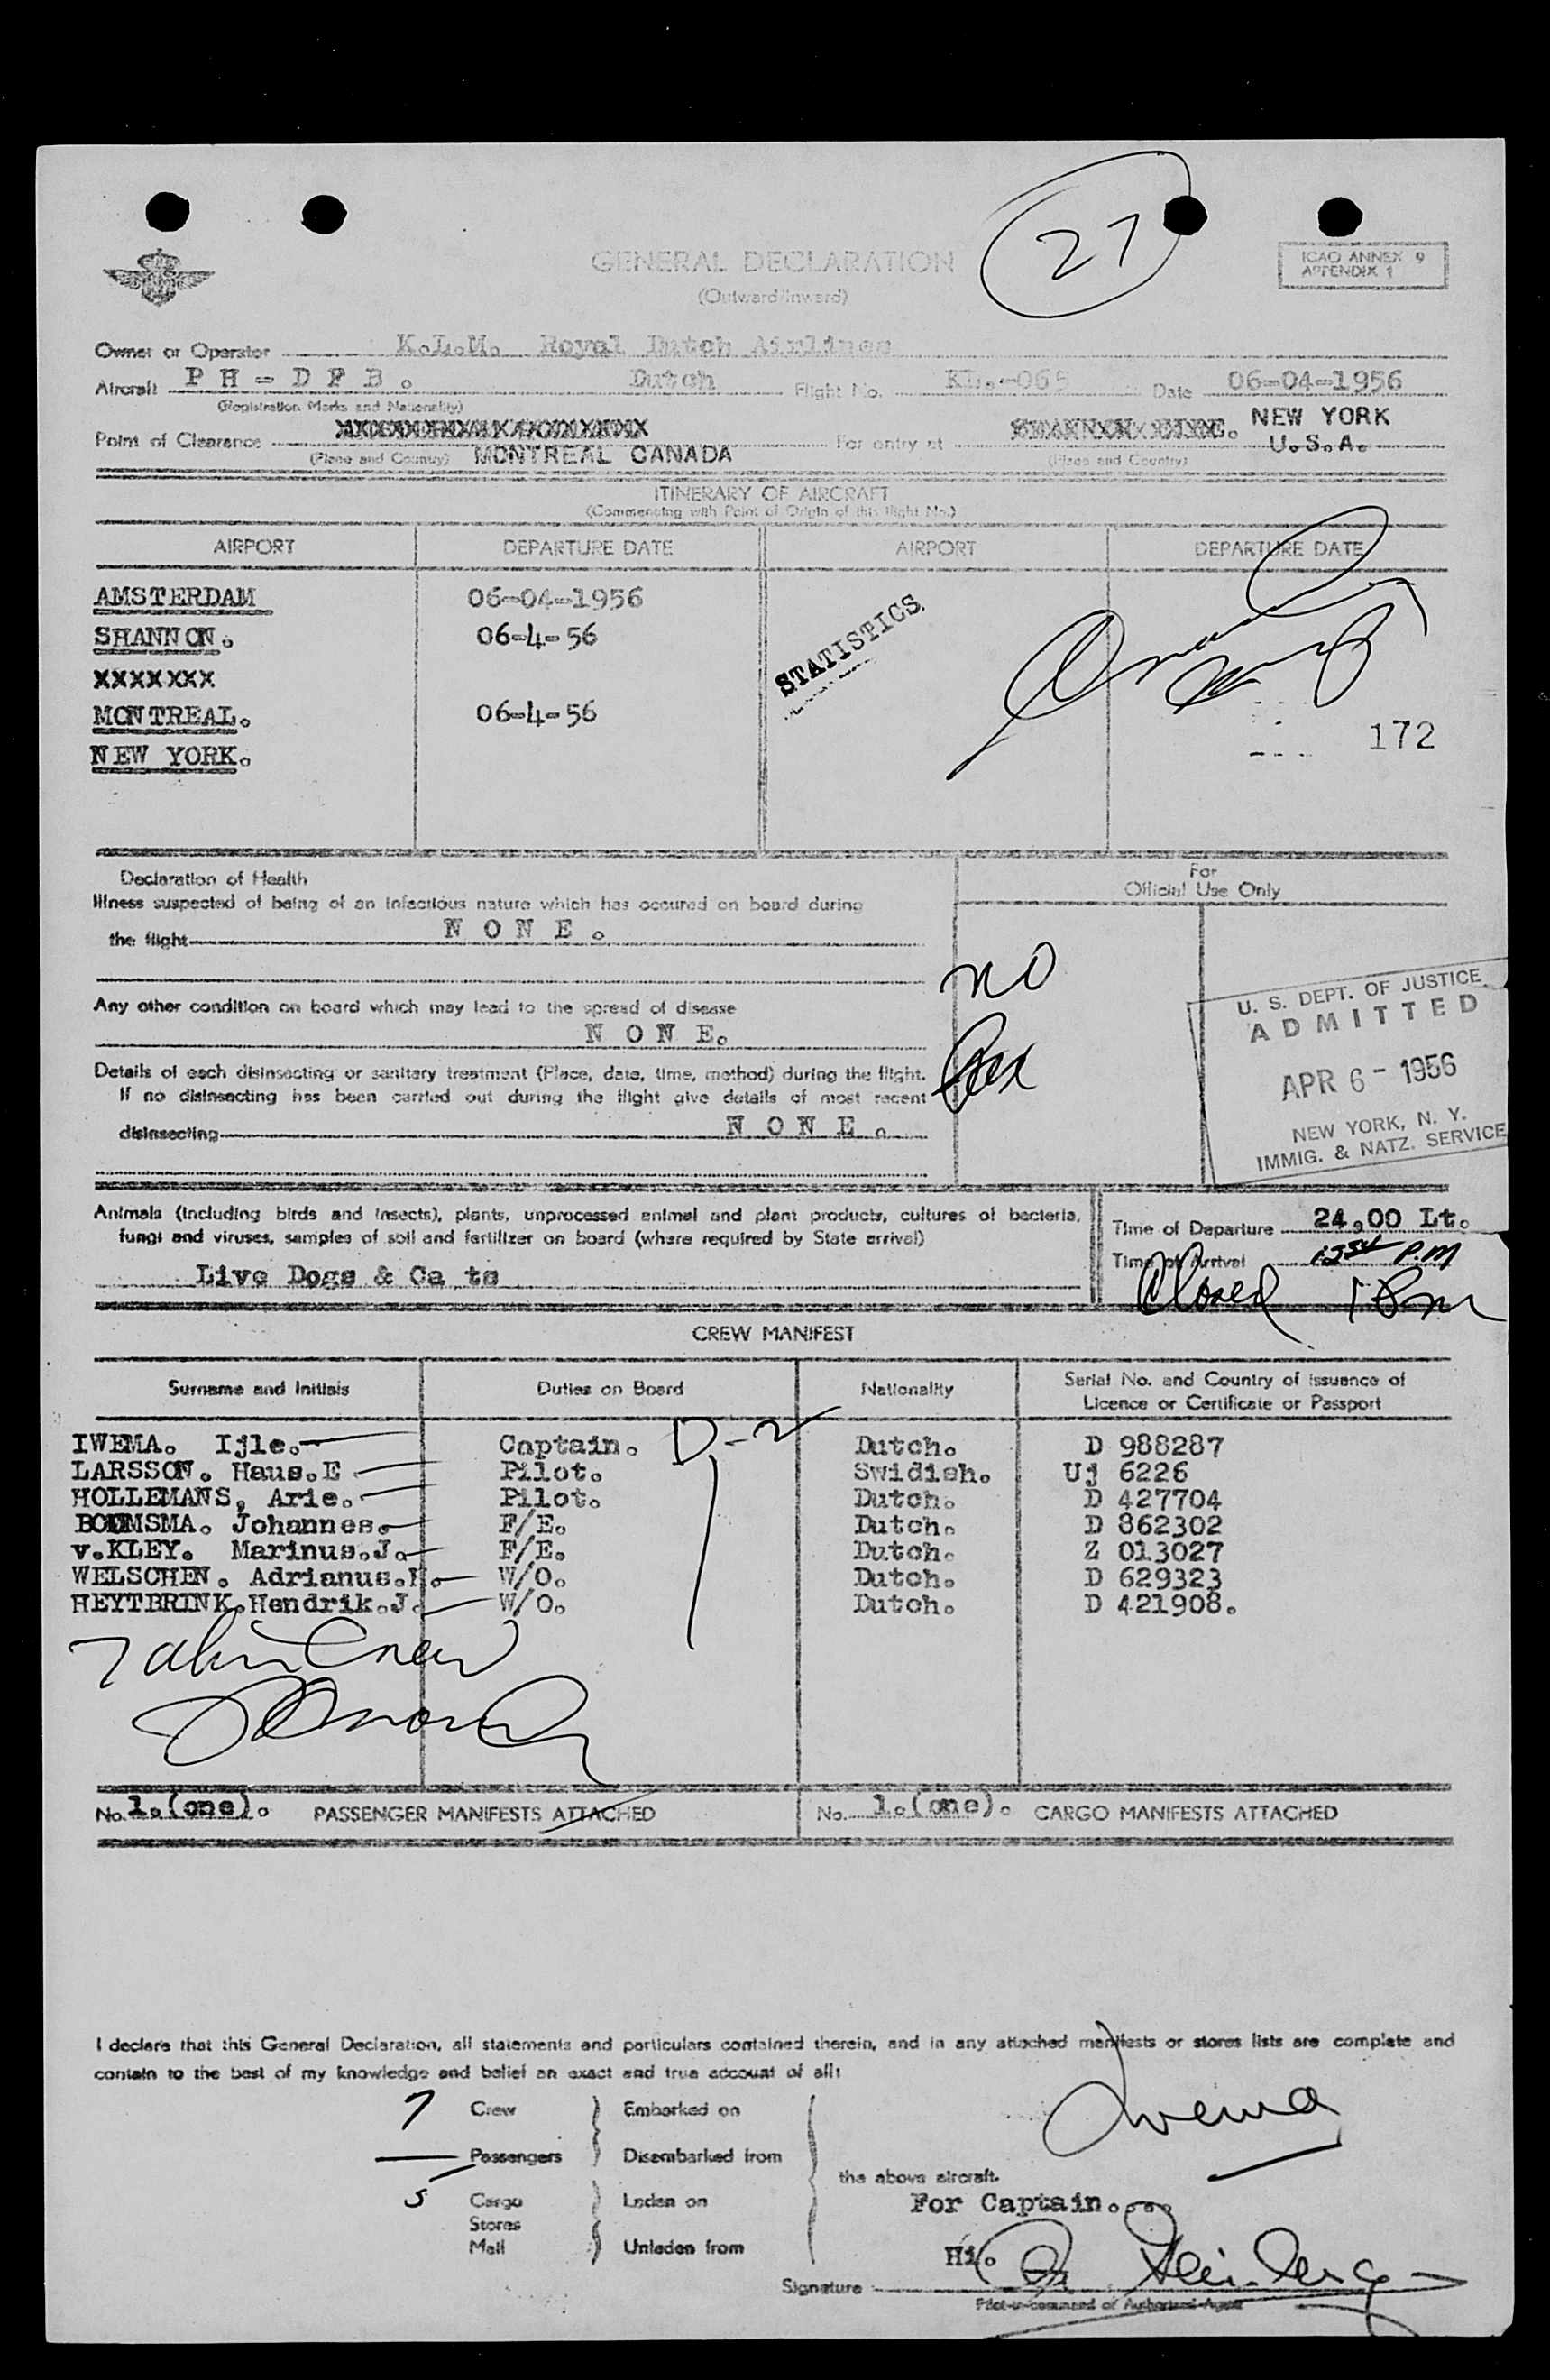 27
GENERAL DECLARATION
(Outward/Inward)
ICAO ANNEX 9
APPENDIX 1
Owner or Operator K.L.M. Royal Dutch Airlines
Aircraft PH-DFB. Dutch Flight No. KL.-065 Date 06-04-1956
(Registration Marks and Nationality)
Point of Clearance MONTREAL CANADA For entry at NEW YORK U.S.A.
(Place and Country) (Place and Country)
ITINERARY OF AIRCRAFT
(Commencing with Point of Origin of this flight No.)
AIRPORT DEPARTURE DATE AIRPORT DEPARTURE DATE
AMSTERDAM 06-04-1956
SHANNON. 06-4-56
STATISTICS
XXXXXXX
MONTREAL. 06-4-56
172
NEW YORK.
Declaration of Health
For
Official Use Only
Illness suspected of being of an infectious nature which has occured on board during
the flight NONE.
no
Any other condition on board which may lead to the spread of disease
NONE.
U. S. DEPT. OF JUSTICE
ADMITTED
APR 6 - 1956
NEW YORK, N. Y.
IMMIG. & NATZ. SERVICE
Details of each disinsecting or sanitary treatment (Place, date, time, method) during the flight.
If no disinsecting has been carried out during the flight give details of most recent
disinsecting NONE.
Animals (including birds and insects), plants, unprocessed animal and plant products, cultures of bacteria,
fungi and viruses, samples of soil and fertilizer on board (where required by State arrival)
Live Dogs & Ca ts
Time of Departure 24,00 Lt.
Time of Arrival P.M
Closed
CREW MANIFEST
Surname and Initials Duties on Board Nationality Serial No. and Country of Issuance of Licence or Certificate or Passport
D-2
IWEMA. Ijle. Captain. Dutch. D 988287
LARSSON. Haus.E Pilot. Swidish. Uj 6226
HOLLEMANS, Arie. Pilot. Dutch. D 427704
BOUMSMA. Johannes. F/E. Dutch. D 862302
v.KLEY. Marinus.J. F/E. Dutch. Z 013027
WELSCHEN. Adrianus. W/O. Dutch. D 629323
HEYTBRINK.Hendrik.J. W/O. Dutch. D 421908.
7 Crew
No. 1.(one). PASSENGER MANIFESTS ATTACHED No. 1.(one). CARGO MANIFESTS ATTACHED
I declare that this General Declaration, all statements and particulars contained therein, and in any attached manifests or stores lists are complete and
contain to the best of my knowledge and belief an exact and true account of all:
7 Crew Embarked on
Iwema
Passengers Disembarked from
the above aircraft.
5 Cargo Laden on
For Captain.
Stores
Mail Unladen from
Signature
Pilot-in-command or Authorised Agent